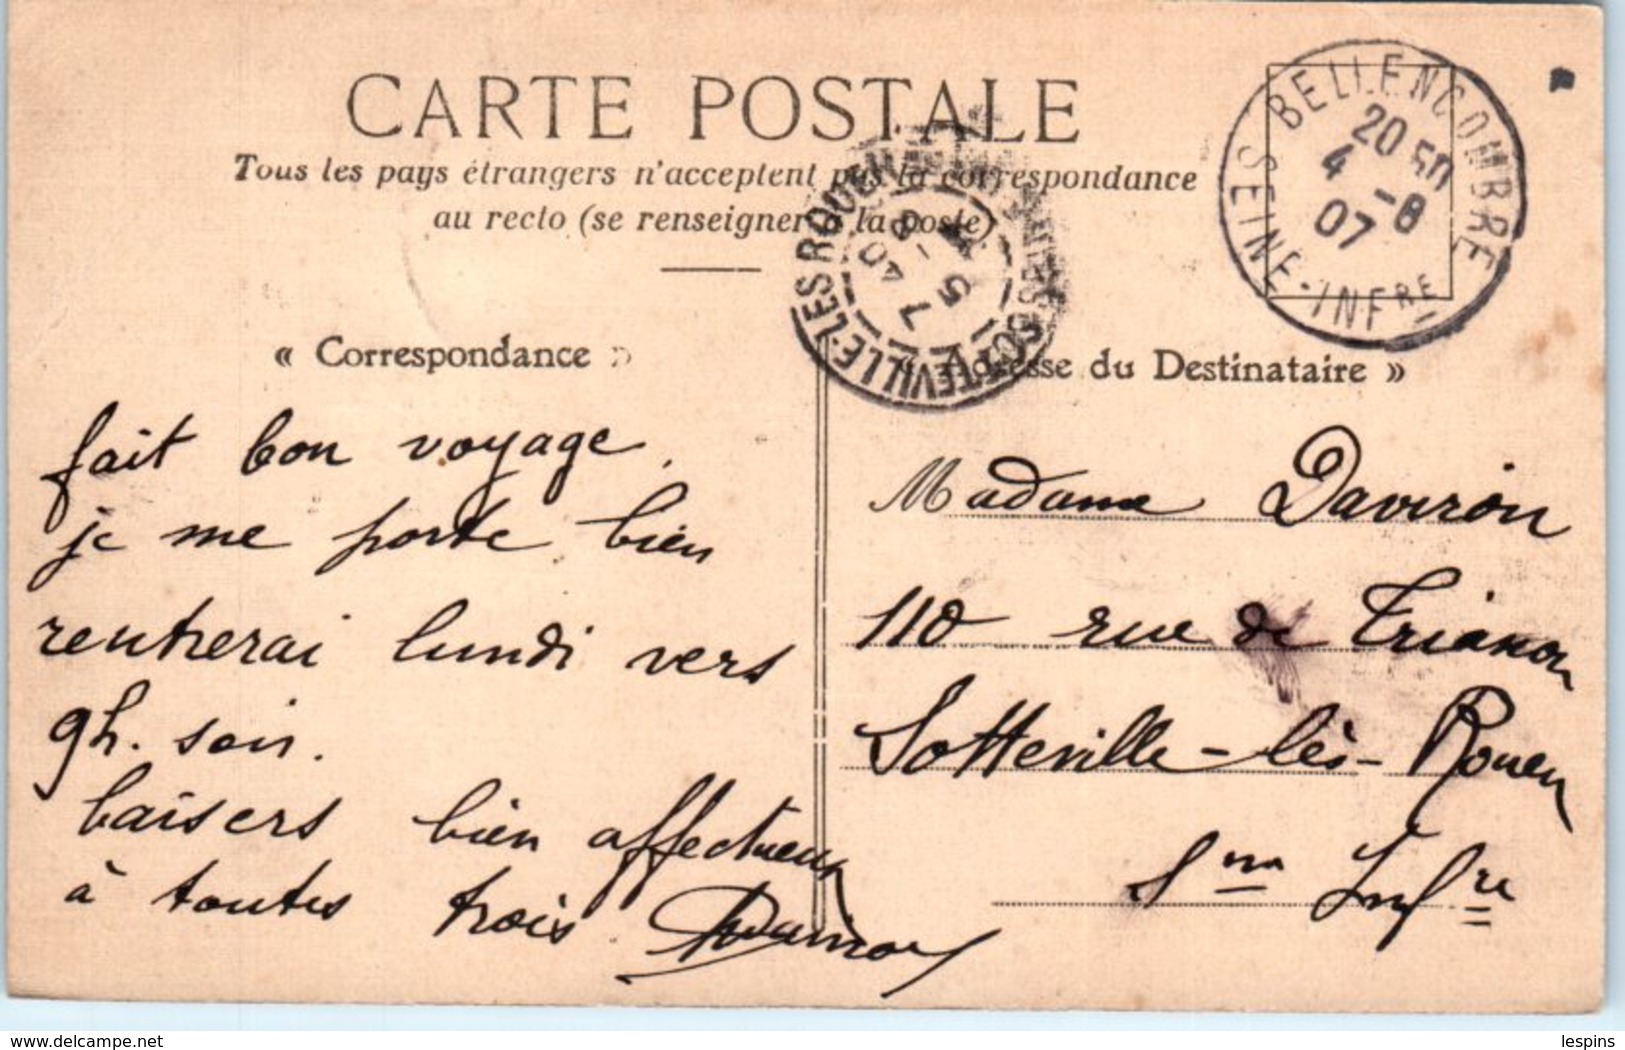 CARTE POSTALE
Tous les pays étrangers n'acceptent pas la correspondance
au recto (se renseigner à la poste)
BELLENCOMBRE
20 50
4 -8
07
SEINE-INFRE
SOTTEVILLE-LES ROUEN
7 40
5 -8
« Correspondance »
fait bon voyage,
je me porte bien
rentrerai lundi vers
9h. soir.
baisers bien affectueux
à toutes trois
« Adresse du Destinataire »
Madame Daviron
110 rue de Trianon
Sotteville-lès-Rouen
Sne Infre
www.delcampe.net
lespins